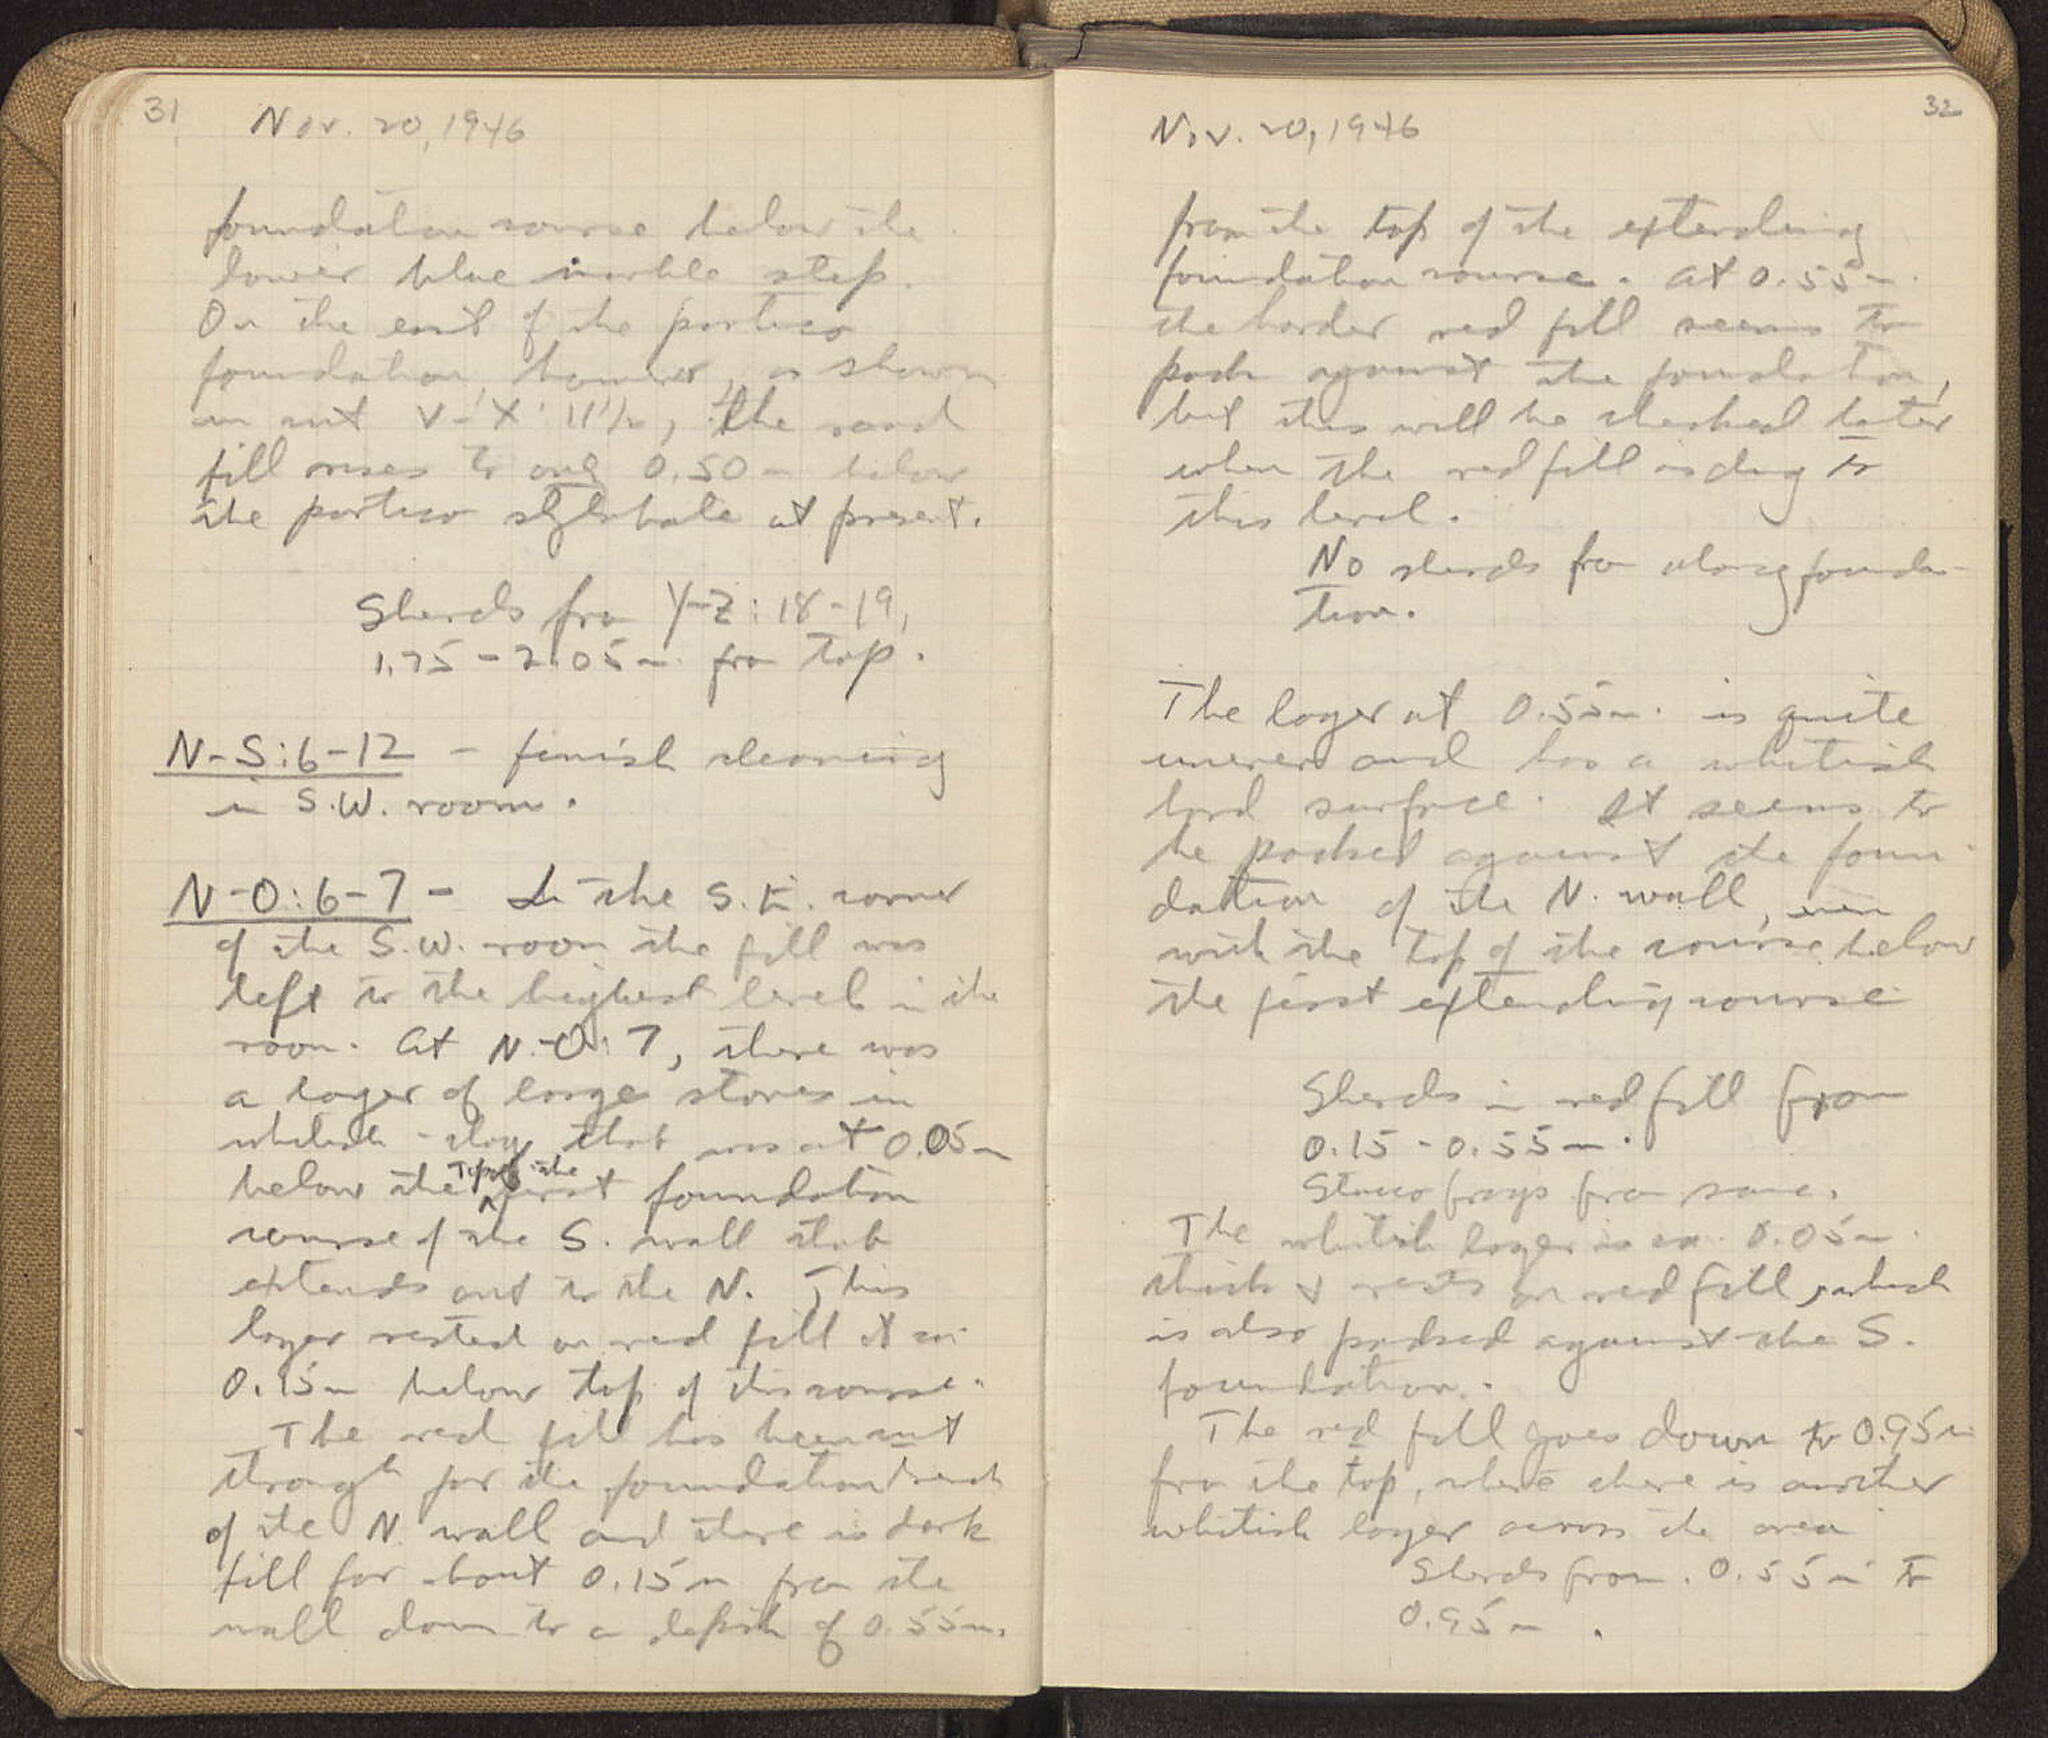 31
Nov. 20, 1946
foundation course below the
lower blue marble step.
On the east of the portico
foundation, however, as shown
in cut V-X: 11½, the sand
fill rises to only 0.50 m below
the portico stylobate at present.
Sherds from Y-Z: 18-19,
1.75 - 2.05 m. from top.
N-S: 6-12 - finish cleaning
in S.W. room.
N-O: 6-7 - In the S.E. corner
of the S.W. room the fill was
left to the highest level in the
room. At N-O: 7, there was
a layer of large stones in
whitish clay that was at 0.05 m
below the top of the first foundation
course of the S. wall that
extends out to the N. This
layer rested on red fill at ca.
0.15 m below top of this course.
The red fill has been cut
through for the foundation trench
of the N. wall and there is dark
fill for about 0.15 m from the
wall down to a depth of 0.55 m.
32
Nov. 20, 1946
from the top of the extending
foundation course. At 0.55 m.
the harder red fill seems to
pack against the foundation,
but this will be checked later
when the red fill is dug to
this level.
No sherds from along founda-
tion.
The layer at 0.55 m. is quite
uneven and has a whitish
hard surface. It seems to
be packed against the foun-
dation of the N. wall, even
with the top of the course below
the first extending course
Sherds in red fill from
0.15 - 0.55 m.
Stucco frags from same.
The whitish layer is ca. 0.05 m.
thick & rests on red fill, which
is also packed against the S.
foundation.
The red fill goes down to 0.95 m
from the top, where there is another
whitish layer across the area
Sherds from 0.55 m to
0.95 m.